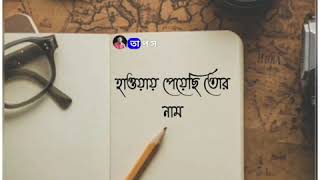 তাপস
হাওয়ায় পেয়েছি তোর
নাম